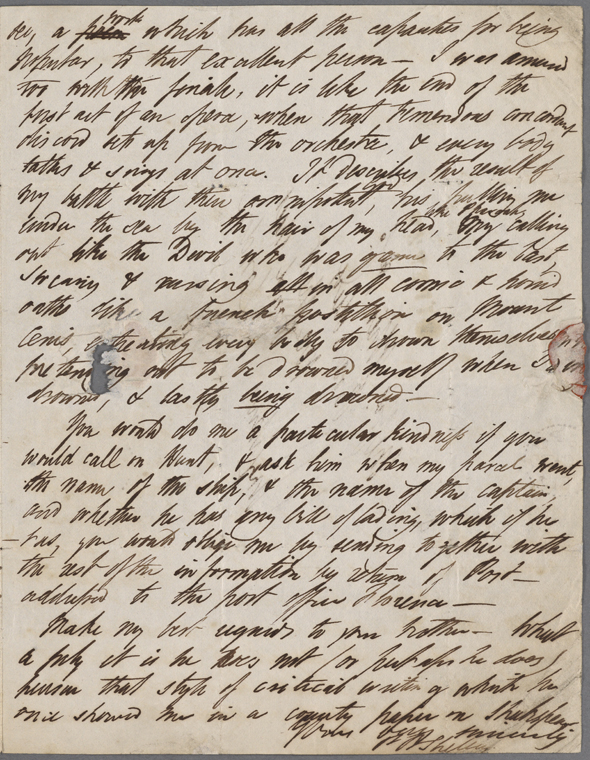 sey, a work which has all the capacities for being
popular, to that excellent person — I was amused
too with the finale; it is like the end of the
first act of an opera, when that tremendous concordant
discord sets up from the orchestra, & every body
talks & sings at once. It describes the result of
my battle with their omnipotent, his pulling me
under the sea by the hair of my head, the Pharaoh calling
out like the Devil who was game to the last,
swearing & cursing all in all comic & horrid
oaths like a French postillion on Mount
Cenis, entreating every body to drown themselves,
pretending not to be drowned myself when I am
drowned, & lastly being drowned. —
You would do me a particular kindness if you
would call on Hunt, & ask him when my parcel went,
the name of the ship, & the name of the captain,
and whether he has any bill of lading, which if he
has, you would oblige me by sending together with
the rest of the information by return of Post —
addressed to the post office Florence —
Make my best regards to your brother — What
a pity it is he does not (or perhaps he does)
pursue that style of critical writing which he
once showed me in a county paper on Shakspeare
Yours very sincerely
PBShelley